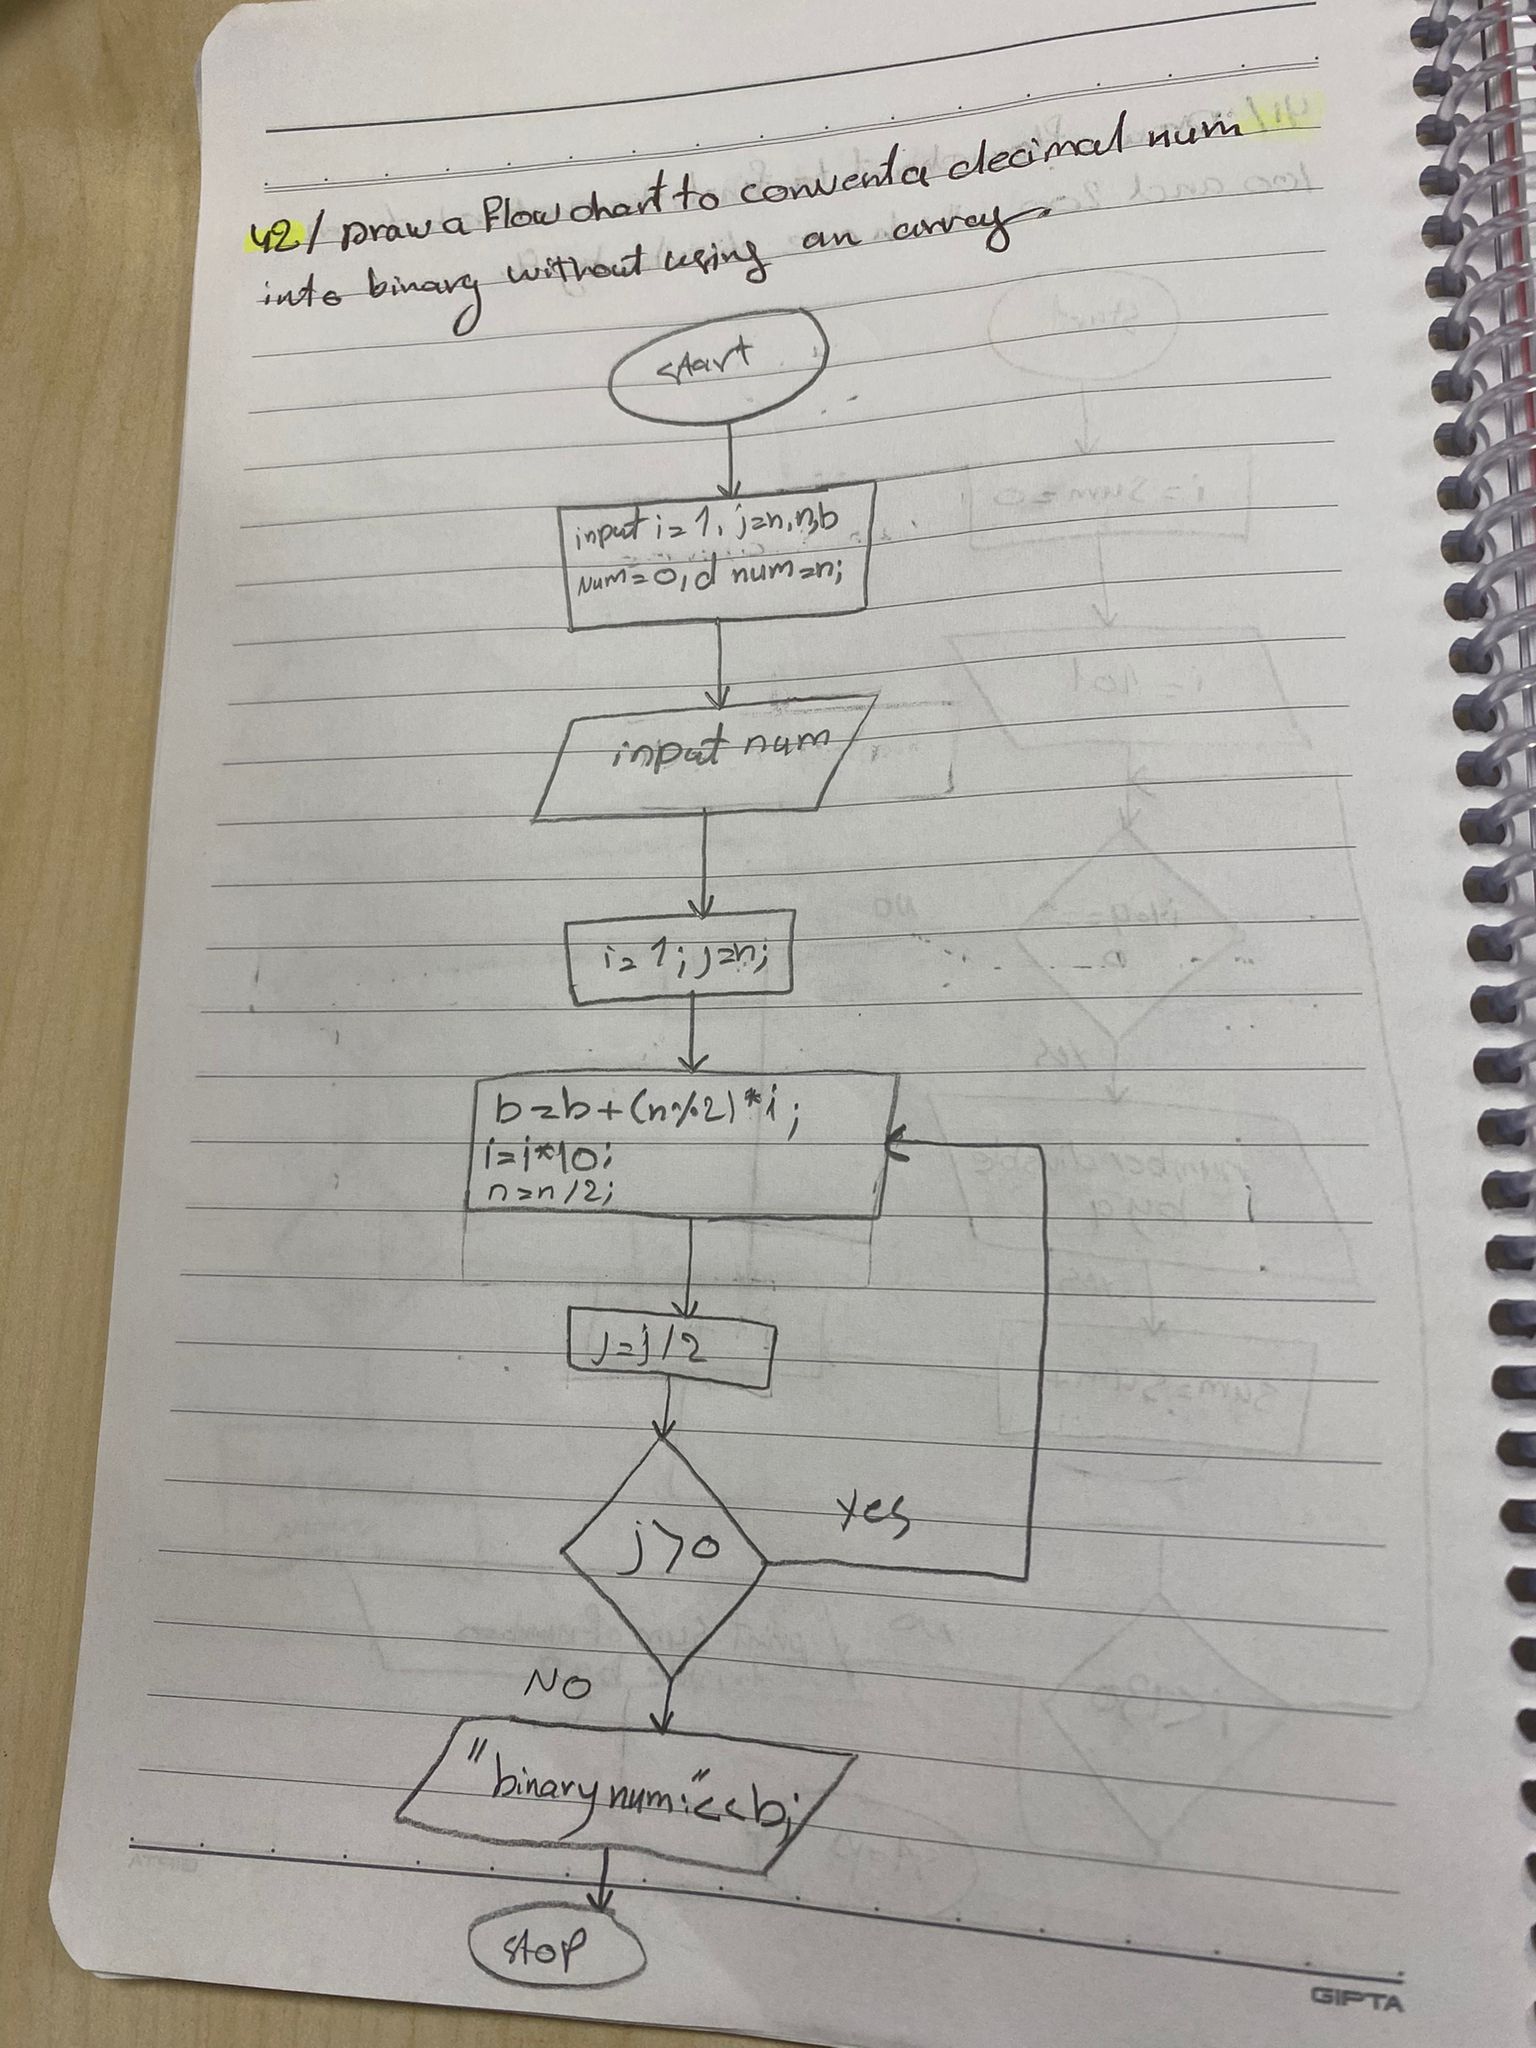 42/ Draw a Flow chart to convert a decimal num
into binary without using an array.
start
input i=1, j=n, n, b
Num=0, d num=n;
input num
i=1; j=n;
b=b+(n%2)*i;
i=i*10;
n=n/2;
j=j/2
j>0
Yes
NO
"binary num:"<<b;
stop
GIPTA